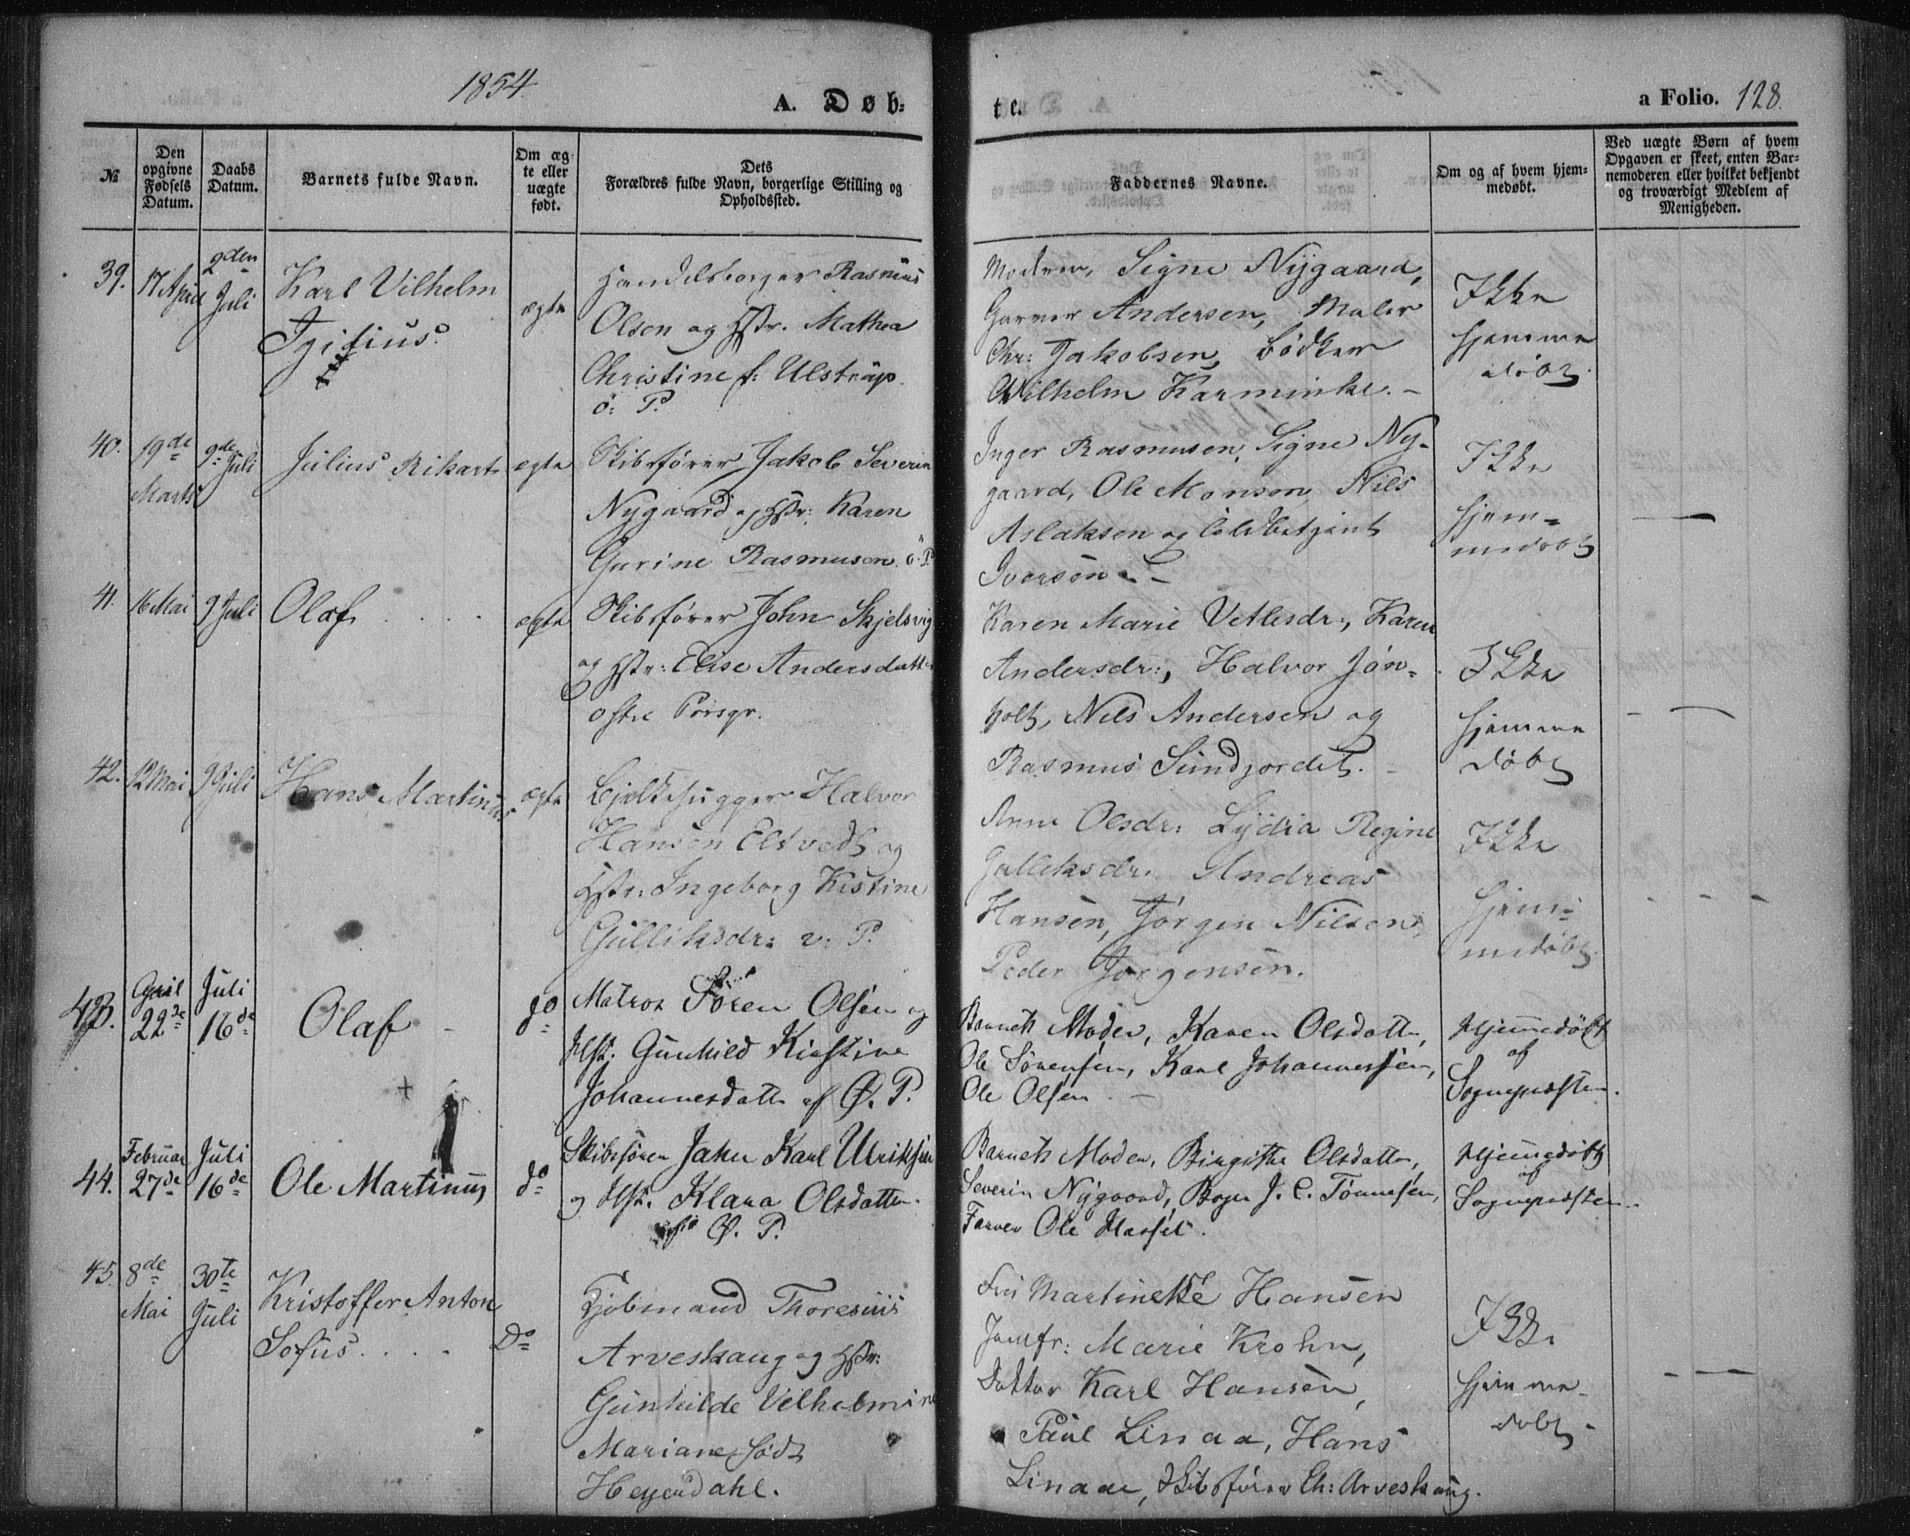 1854
A. Døb-
te.
a Folio. 128.
№
Den opgivne Fødsels Datum.
Daabs Datum.
Barnets fulde Navn.
Om ægte eller uægte født.
Dets
Forældres fulde Navn, borgerlige Stilling og
Opholdssted.
Faddernes Navne.
Om og af hvem hjem-
medøbt.
Ved uægte Børn af hvem
Opgaven er skeet, enten Bar-
nemoderen eller hvilket bekjendt
og troværdigt Medlem af
Menigheden.
39. 17 April 2den Juli
Karl Vilhelm
ægte
Handelsborger Rasmus
Olsen og Hstr. Mathea
Christine f: Ulstrup
ö: P.
Modren, Signe Nygaard,
Garver Andersen, Maler
Chr: Jakobsen, Bödker
Wilhelm Karminke. –
Ikke
hjemme
döbt.
40. 19de Marts 9de Juli
Julius Rikart
ægte
Skibsfører Jakob Severin
Nygaard og Hstr: Karen
Gurine Rasmusen. ö. P.
Inger Rasmusen, Signe Ny-
gaard, Ole Monsen Nils
Aslaksen og Toldbetjent
Iversen. –
Ikke
hjem-
medobt
41. 16 Mai 9 Juli
Olaf
ægte
Skibsfører John Skjelsvig
og Hstr: Elise Andersdatter
østre Porsgr.
Karen Marie Vetlesdr:, Karen
Andersdr:, Halvor Jön-
holt, Nils Andersen og
Rasmus Sundjordet. –
Ikke
hjemme
döbt
42. 12 Mai 9 Juli
Hans Martinus
ægte
Bjelkehugger Halvor
Hansen Elstvedt og
Hstr: Ingeborg Kistine
Gulliksdr: v: P.
Anne Olsdr: Lydia Regine
Gulleksdr. Andreas
Hansen, Jörgen Nilsen,
Peder Jorgensen.
Ikke
hjem-
medöbt
43. April 22de Juli 16de
Olaf
do
Matros Sören Olsen og
Hst. Gunhild Kirstine
Johannesdatter af Ø. P.
Barnets Moder, Karen Olsdatter,
Ole Sörensen, Karl Johannessen,
Ole Olsen. –
Hjemmedøbt
af
Sognepresten.
44. Februar 27de Juli 16de
Ole Martinus
do
Skibsfören Karl Ulriksen
og Hst. Klara Olsdatter
Ø. P.
Barnets Moder, Birgithe Olsdatter,
Severin Nygaard, J. C. Tönnesen,
Farver Ole Hassel.
Hjemmedøbt
af
Sognepresten.
45. 8de Mai 30te Juli
Kristoffer Anton
Sofus
Do
Kjobmand Thoresius
Arveskaug og Hstr:
Gunhilde Velhelmine
Mariane född
Heyerdahl.
Martine Hansen
Jomfr: Marie Krohn,
Doktor Karl Hansen,
Paul Linaa, Hans
Linaae, Skibsfører Ch: Arveskaug.
Ikke
hjemme-
dobt